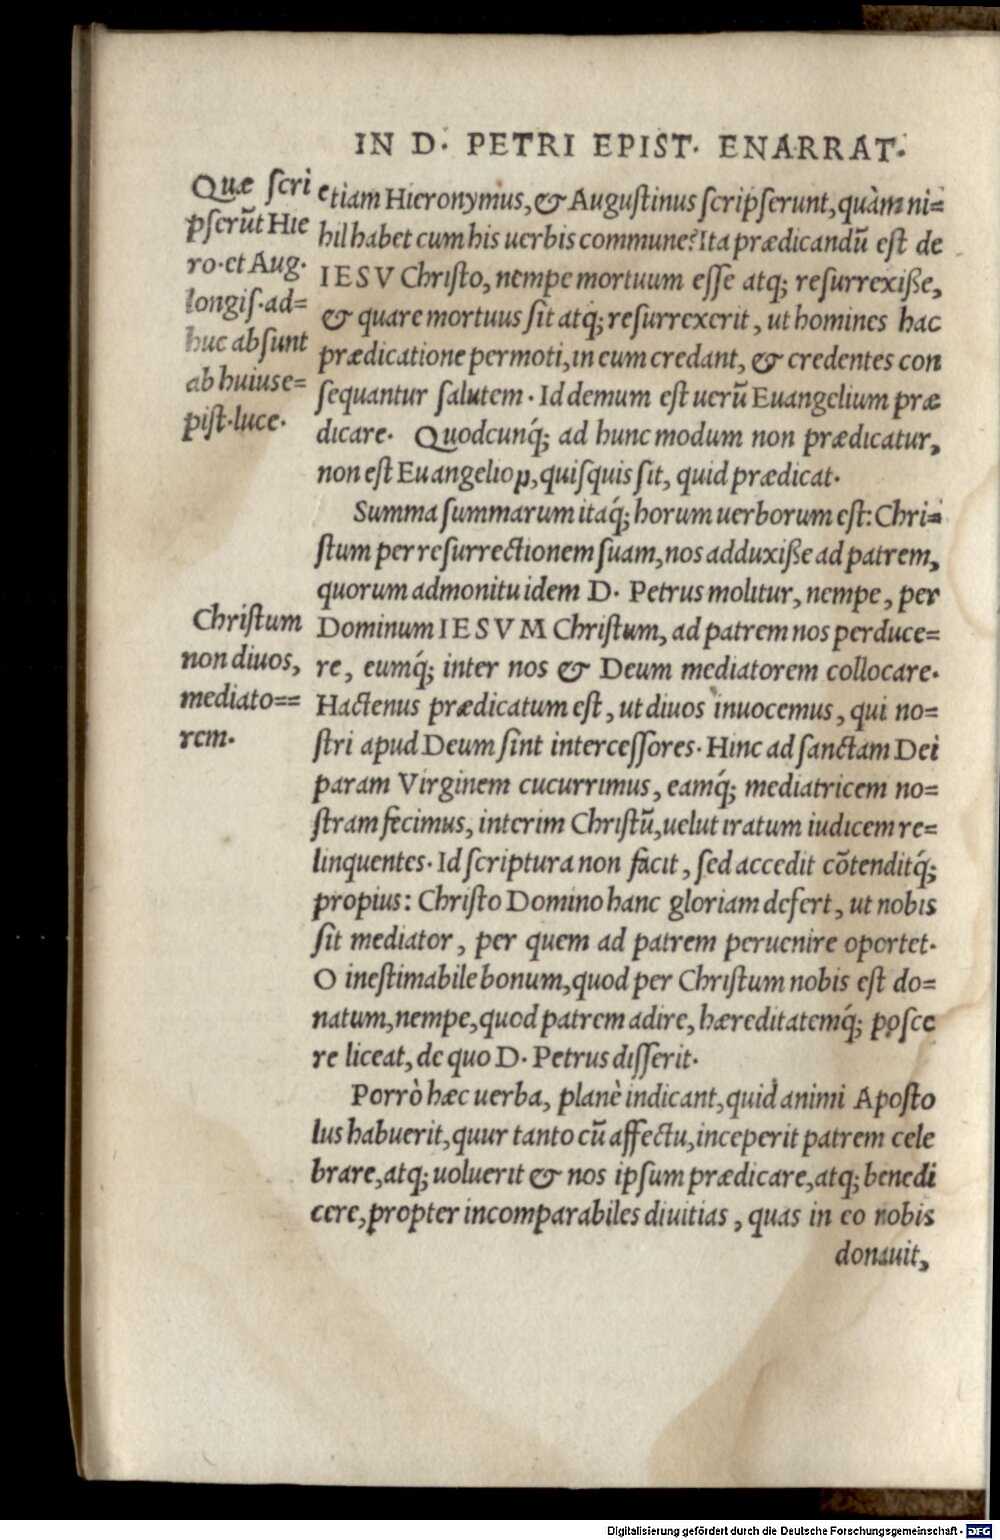 IN D. PETRI EPIST. ENARRAT.
Quæ ſcri
pſerũt Hie
ro. et Aug.
longiſ. ad=
huc abſunt
ab huiuſe=
piſt. luce.
etiam Hieronymus, & Auguſtinus ſcripſerunt, quàm ni=
hil habet cum his uerbis commune? Ita prædicandũ eſt de
IESV Chriſto, nempe mortuum eſſe atq; reſurrexiße,
& quare mortuus ſit atq; reſurrexerit, ut homines hac
prædicatione permoti, in eum credant, & credentes con
ſequantur ſalutem. Id demum eſt uerũ Euangelium præ
dicare. Quodcunq́; ad hunc modum non prædicatur,
non eſt Euangelioꝝ, quiſquis ſit, quid prædicat.
Summa ſummarum itaq́; horum uerborum eſt: Chri=
ſtum per reſurrectionem ſuam, nos adduxiße ad patrem,
quorum admonitu idem D. Petrus molitur, nempe, per
Dominum IESVM Chriſtum, ad patrem nos perduce=
re, eumq́; inter nos & Deum mediatorem collocare.
Hactenus prædicatum eſt, ut diuos inuocemus, qui no=
ſtri apud Deum ſint interceſſores. Hinc ad ſanctam Dei
param Virginem cucurrimus, eamq́; mediatricem no=
ſtram fecimus, interim Chriſtũ, uelut iratum iudicem re=
linquentes. Id ſcriptura non facit, ſed accedit cõtenditq́;
propius: Chriſto Domino hanc gloriam defert, ut nobis
ſit mediator, per quem ad patrem peruenire oportet.
O ineſtimabile bonum, quod per Chriſtum nobis eſt do=
natum, nempe, quod patrem adire, hæreditatemq́; poſce
re liceat, de quo D. Petrus diſſerit.
Chriſtum
non diuos,
mediato==
rem.
Porrò hæc uerba, planè indicant, quid animi Apoſto
lus habuerit, quur tanto cũ affectu, inceperit patrem cele
brare, atq; uoluerit & nos ipſum prædicare, atq; benedi
cere, propter incomparabiles diuitias, quas in eo nobis
donauit,
Digitalisierung gefördert durch die Deutsche Forschungsgemeinschaft - DFG